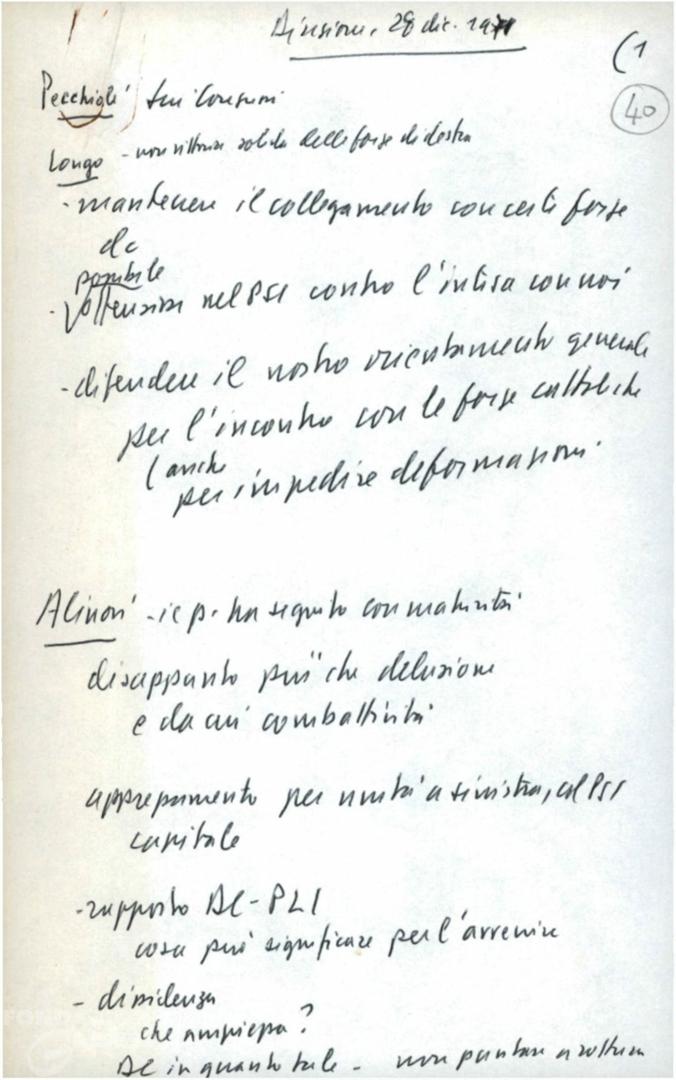 Direzione, 28 dic. 1971
(1
40
Pecchioli sui Comuni
Longo - non vittoria solida delle forze di destra
- mantenere il collegamento con certe forze
dc
possibile
- offensiva nel PSI contro l'intesa con noi
- difendere il nostro orientamento generale
per l'incontro con le forze cattoliche
(anche
per impedire deformazioni
Alinovi - il p. ha seguito con maturità
disappunto più che delusione
e da cui combattività
apprezzamento per unità a sinistra, col PSI
capitale
- rapporto DC-PLI
cosa può significare per l'avvenire
- dissidenza
che ampiezza?
DC in quanto tale - non puntare a rottura